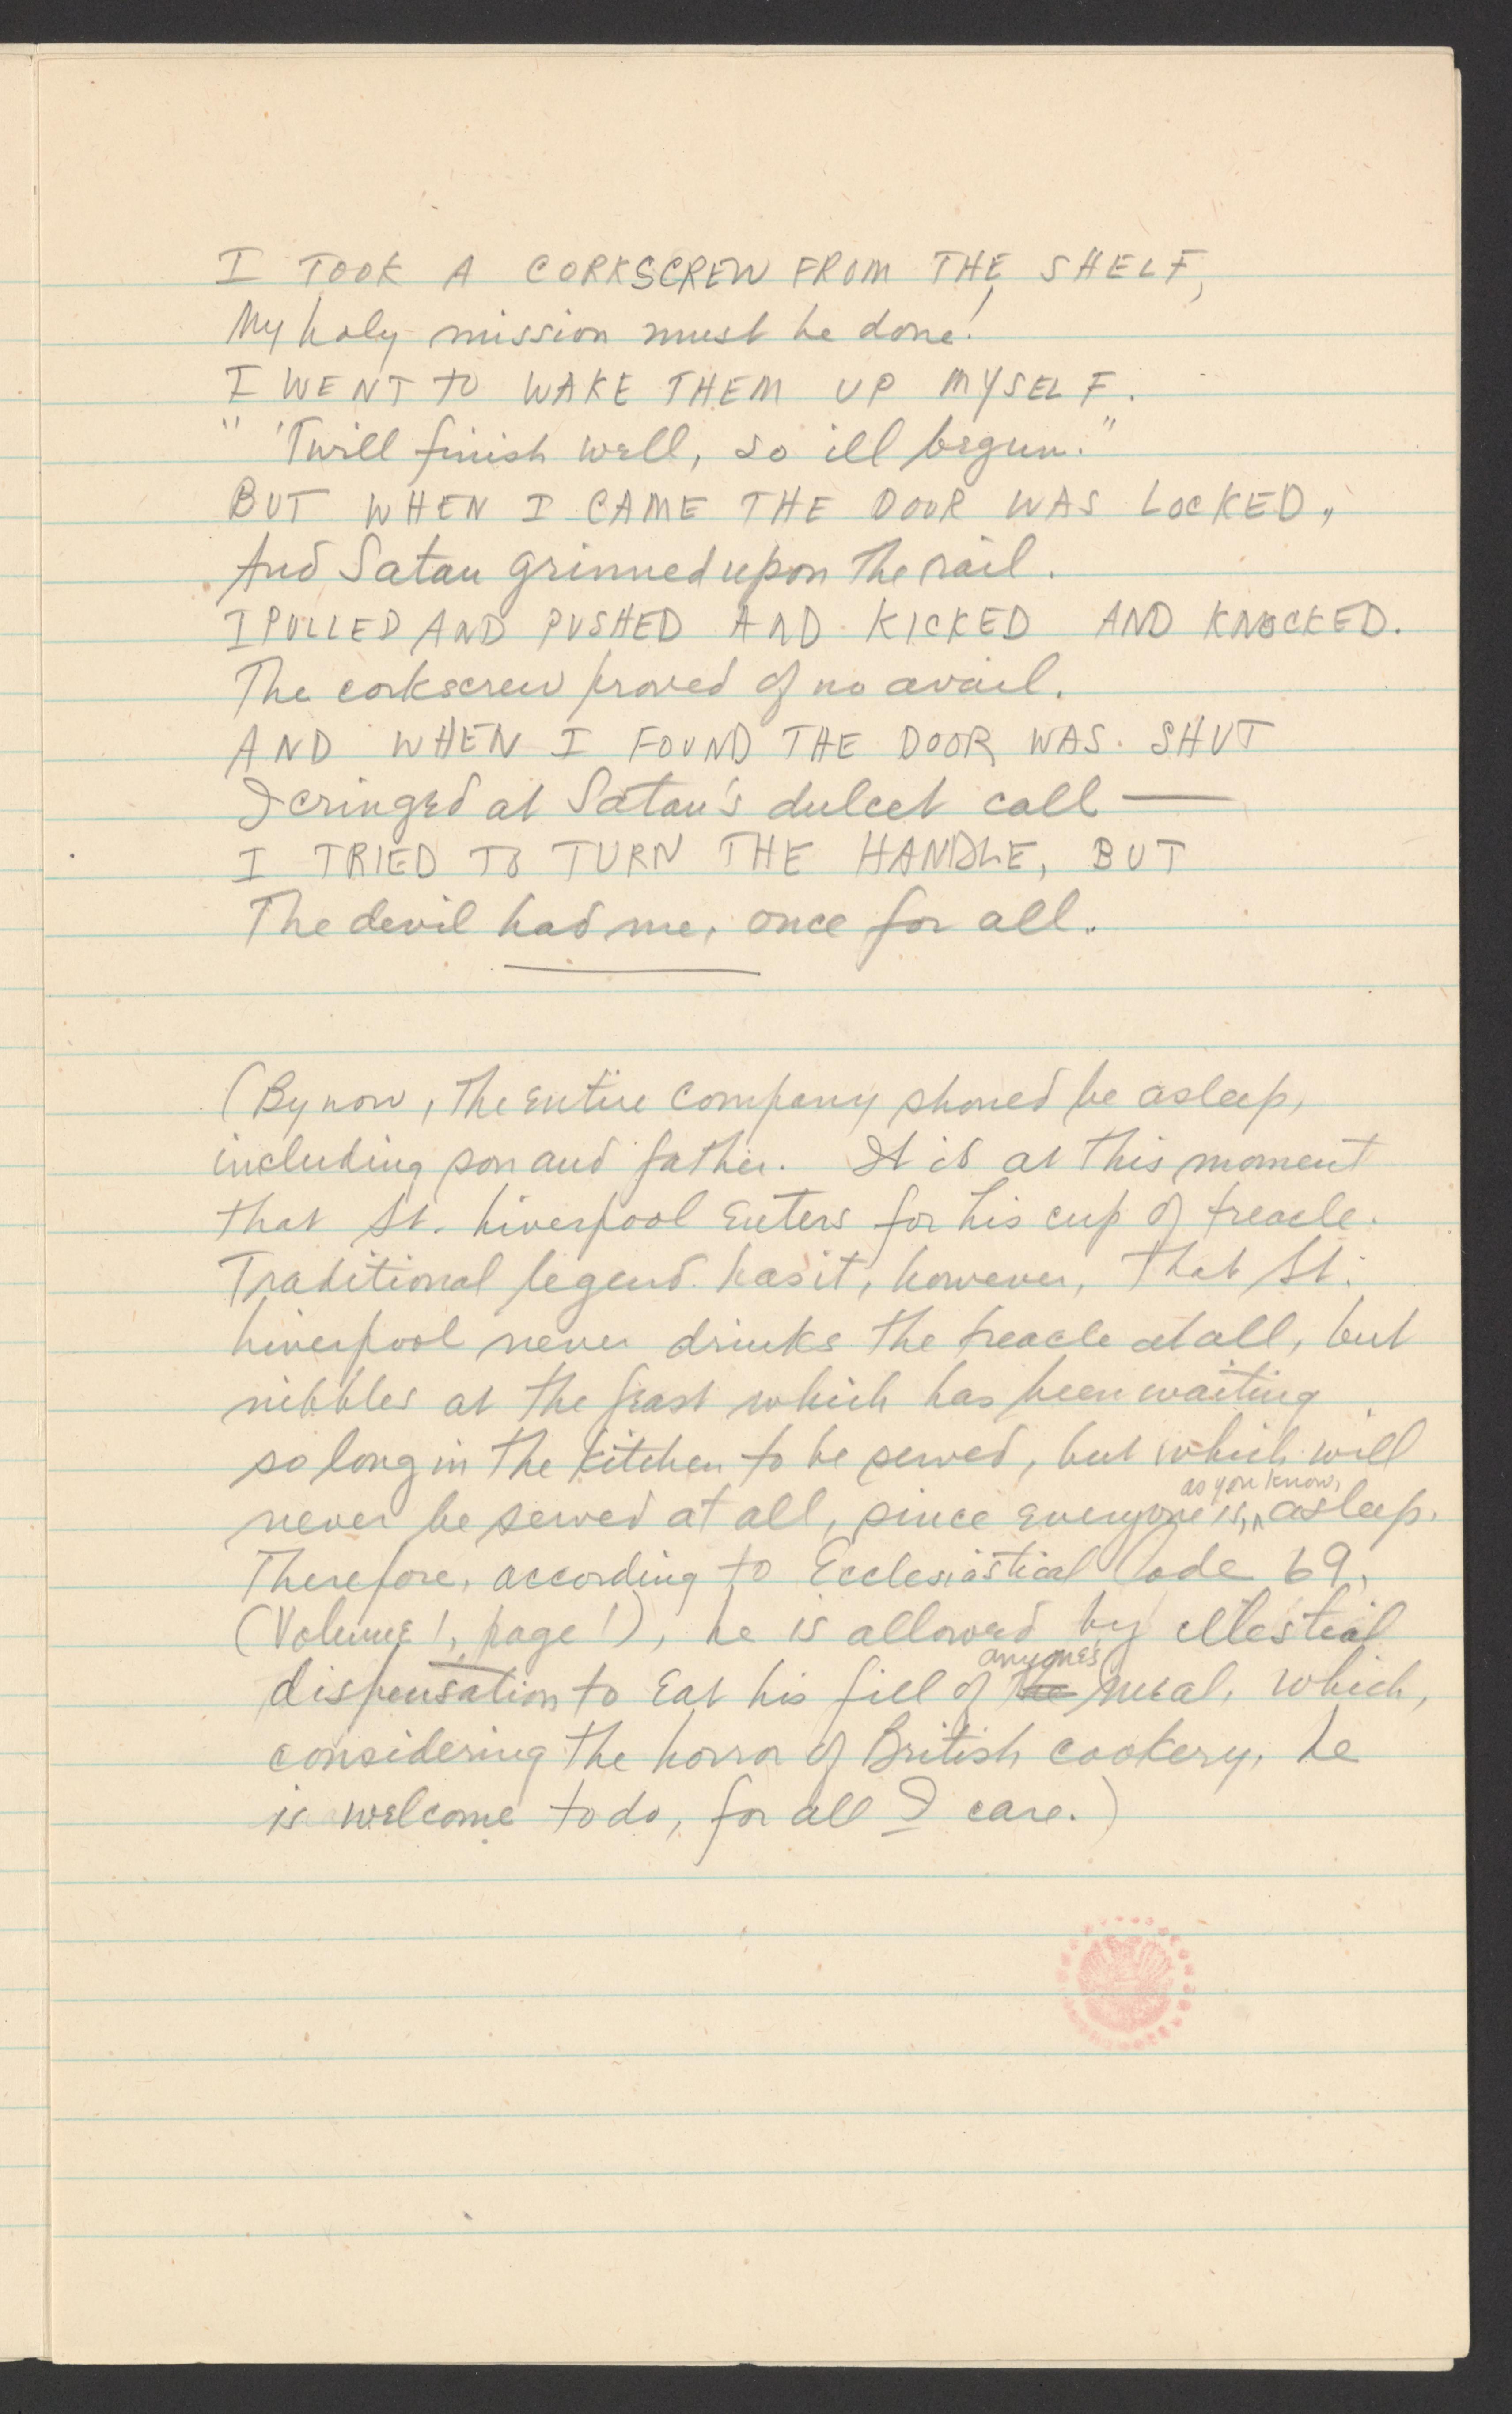 I TOOK A CORKSCREW FROM THE SHELF,
My holy mission must be done!
I WENT TO WAKE THEM UP MYSELF.
" 'Twill finish well, so ill begun."
BUT WHEN I CAME THE DOOR WAS LOCKED,
And Satan grinned upon the rail.
I PULLED AND PUSHED AND KICKED AND KNOCKED.
The corkscrew proved of no avail.
AND WHEN I FOUND THE DOOR WAS SHUT
I cringed at Satan's dulcet call —
I TRIED TO TURN THE HANDLE, BUT
The devil had me, once for all.
(By now, the entire company should be asleep,
including son and father. It is at this moment
that St. Liverpool enters for his cup of treacle.
Traditional legend has it, however, that St.
Liverpool never drinks the treacle at all, but
nibbles at the feast which has been waiting
so long in the kitchen to be served, but which will
as you know,
never be served at all, since everyone is, asleep.
Therefore, according to Ecclesiastical Code 69,
(Volume 1, page 1), he is allowed by celestial
anyone's
dispensation to eat his fill of the meal, which,
considering the horror of British cookery, he
is welcome to do, for all I care.)